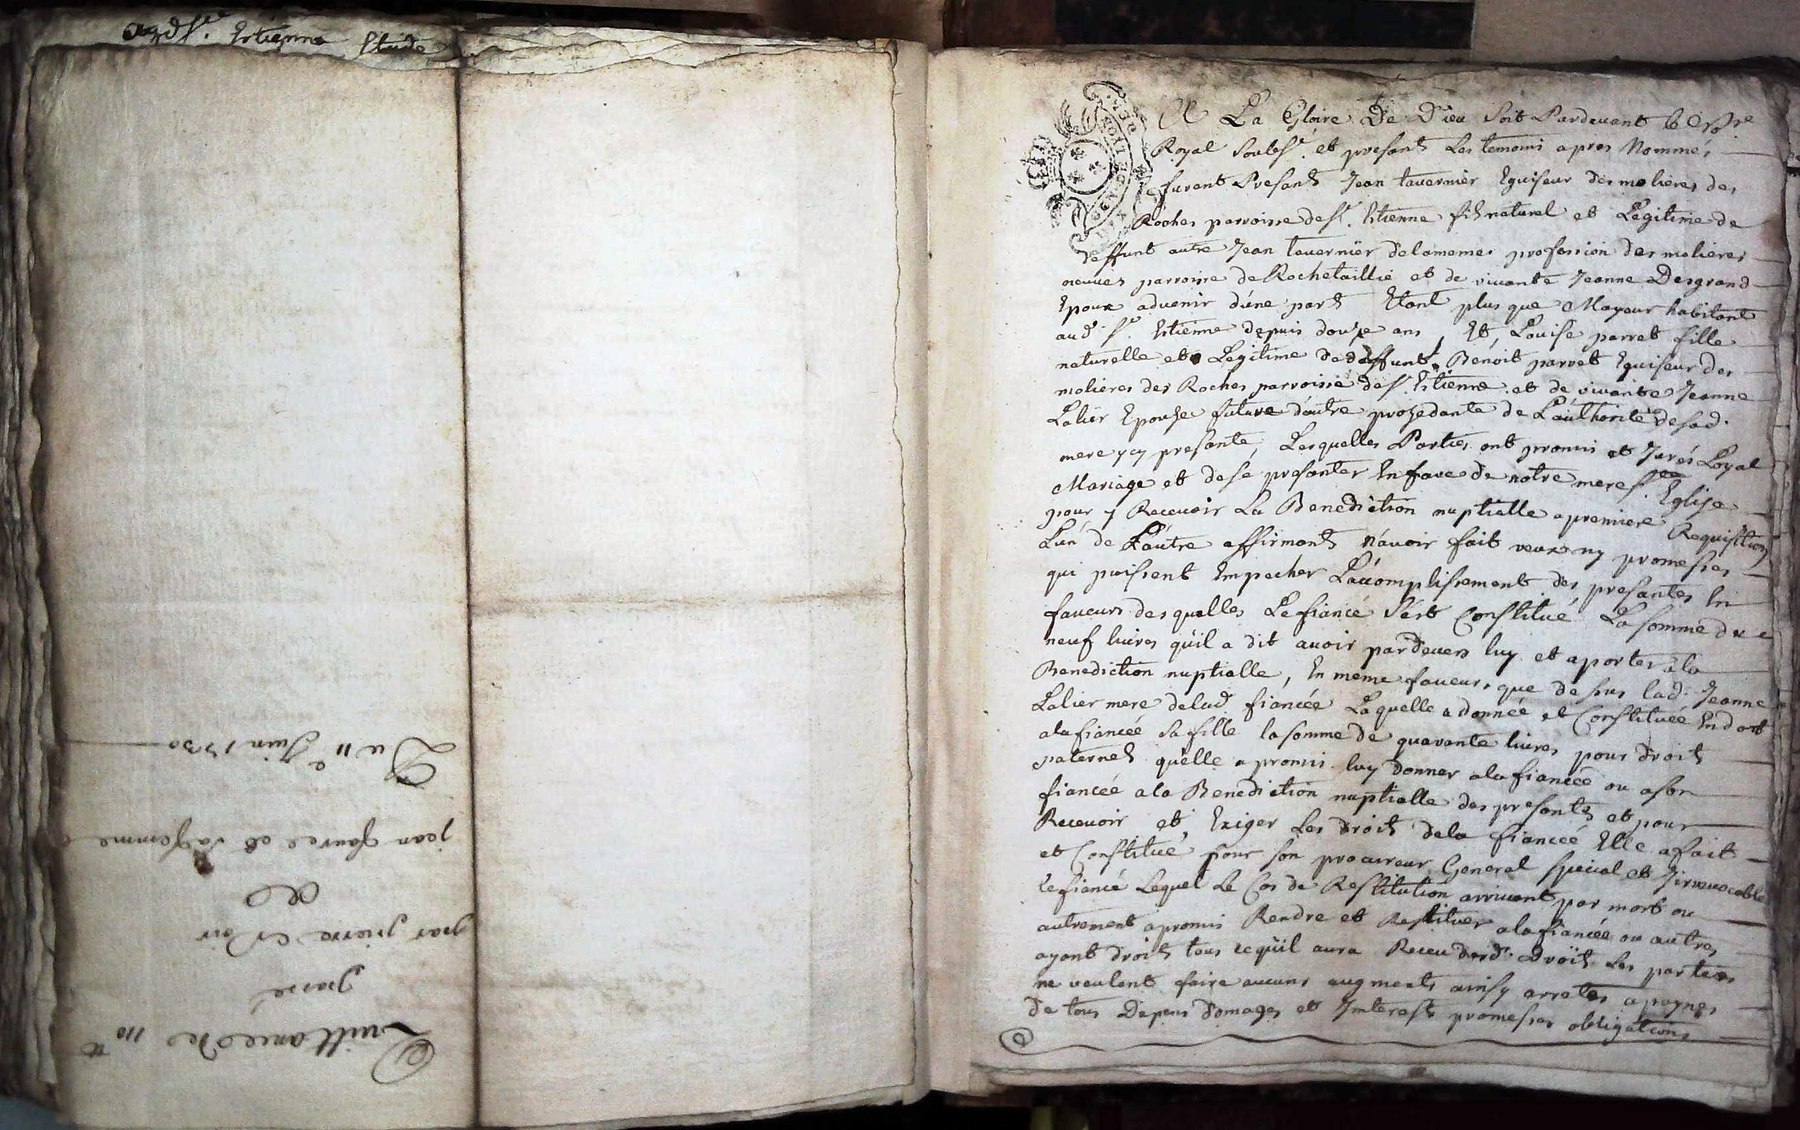 audSt. Estienne Etude
Quittance de 110 tt
passé
par pierre
A
jean faure et sa femme
Du 11e Juin 1730
A La Gloire De Dieu Soit Pardevant le No.re
Royal Soubs.é et presents Les temoins apres Nommés
furent Presents Jean tavernier Eguiseur des molieres des
Roches parroisse de St. Etienne fils naturel et Legitime de
deffunt autre Jean tavernier de la meme profession des molieres
neuves parroisse de Rochetaillié et de vivante Jeanne Desgrand
Epoux advenir d'une part Etant plus que Mayeur habitant
aud. St. Estienne depuis douze ans, Et Louise parret fille
naturelle et Legitime de deffunt Benoit parret Eguiseur des
molieres des Roches parroisse de St. Estienne et de vivante Jeanne
Lalier Epouse future d'autre procedante de L'authorité de sad.
mere y cy presente, Lesquelles Parties ont promis et Jurés Loyal
Mariage et de se presenter En face de notre mere Ste Eglise
pour y Recevoir La Benediction nuptialle a premiere Requisition
L'un de L'autre affirmants n'avoir fait veux ny promesses
qui puissent Empecher L'acomplissement des presantes En
faveurs desquelles Le fiancé s'est Constitué La somme de
neuf livres qu'il a dit avoir pardevers luy et aporter a la
Benediction nuptialle, En meme faveurs que desus lad. Jeanne
Lalier mere de lad. fiancée Laquelle a donnée et Constituée En dot
a la fiancée sa fille la somme de quarante livres pour droits
paternels qu'elle a promis luy donner a la fiancée ou a son
fiancée a la Benediction nuptialle des presentes et pour
Recevoir et Exiger Les droits de la fiancée Elle a fait
et Constitué pour son procureur General special et Jrrevocable
Le fiancé Lequel Le Cas de Restitution arrivant par mort ou
autrement a promis Rendre et Restituer a la fiancée ou autres
ayant droits tous ce qu'il aura Receu desd. Droits Les parties
ne veulent faire aucuns augments ainsy arretés a peynes
De tous Depens Domages et Jnterests promesses obligations